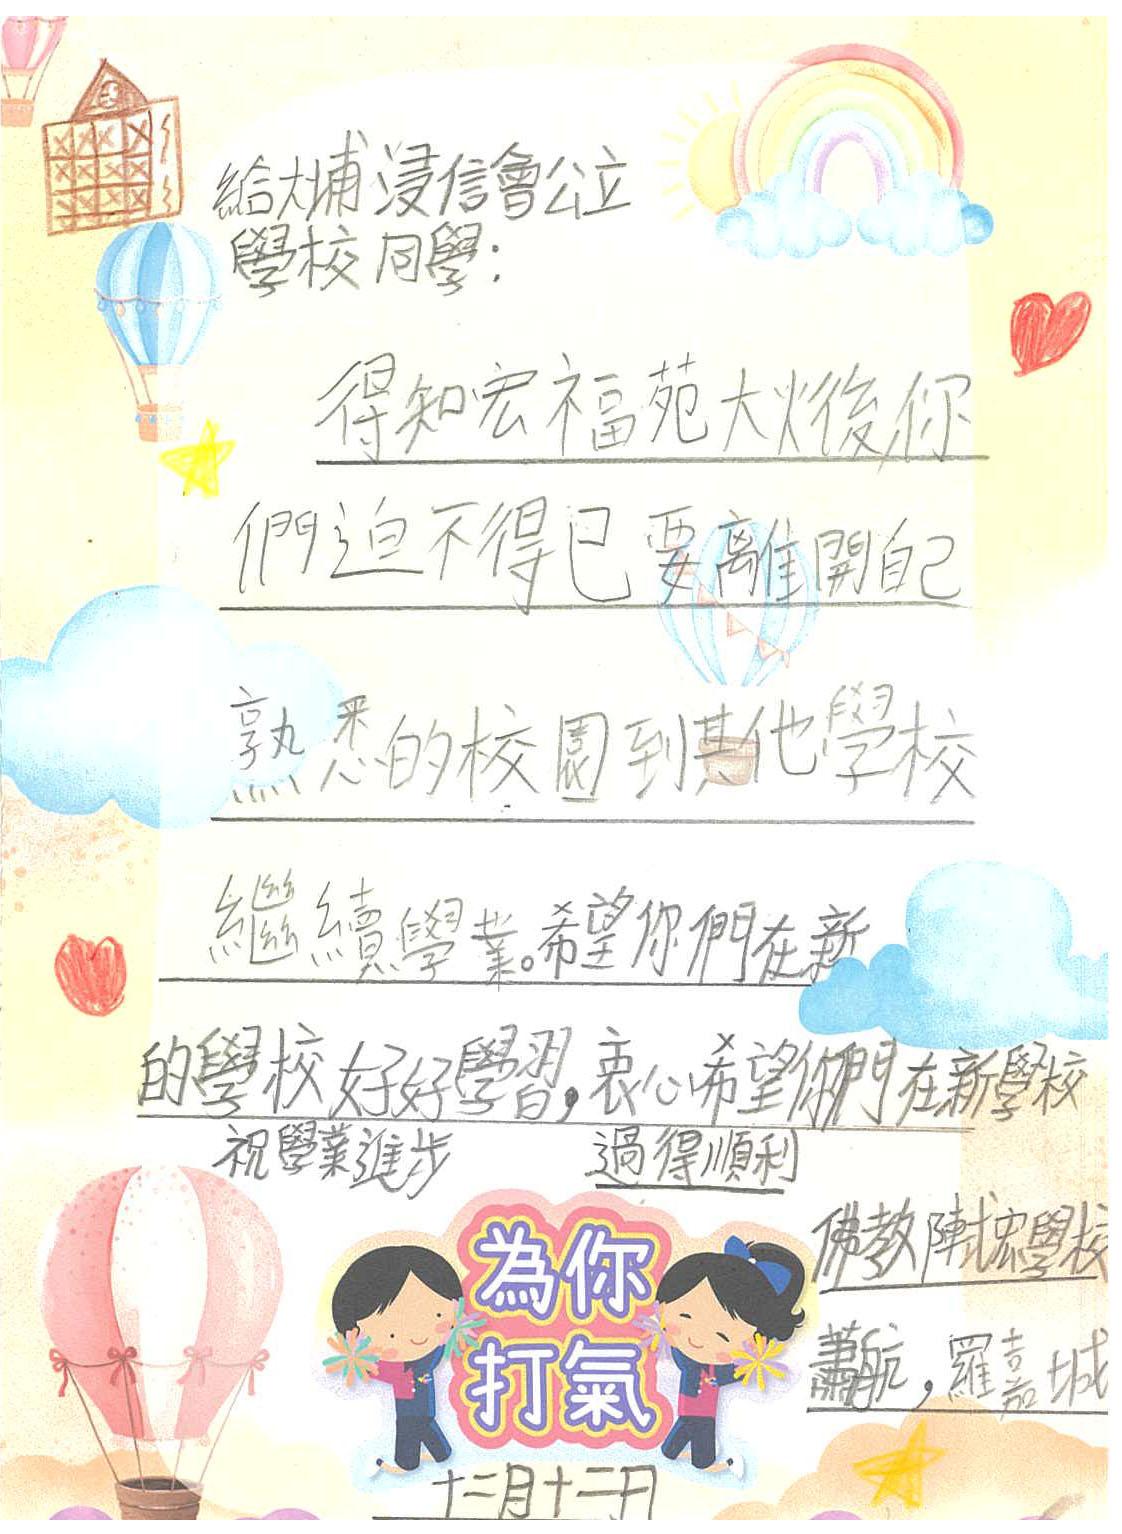 給大埔浸信會公立
學校同學：
得知宏福苑大火後,你
們迫不得已要離開自己
熟悉的校園到其他學校
繼續學業。希望你們在新
的學校好好學習,衷心希望你們在新學校
過得順利
祝學業進步
為你
打氣
佛教陳榮宏學校
蕭航,羅嘉城
十二月十二日